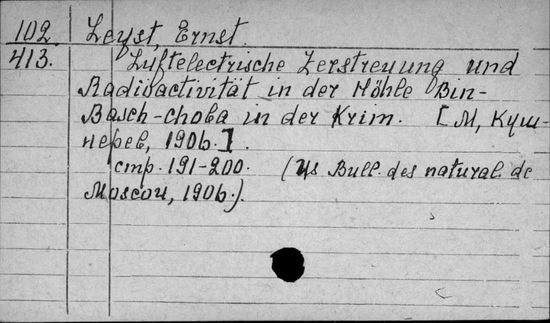 102 Leyst, Ernst.
413. Luftelectrische Zerstreuung und
Radioactivität in der Höhle Bin-
Basch-choba in der Krim. [М, Куш-
нерев, 1906.]
стр. 191-200. (Из Bull. des natural. de
Moscou, 1906.).